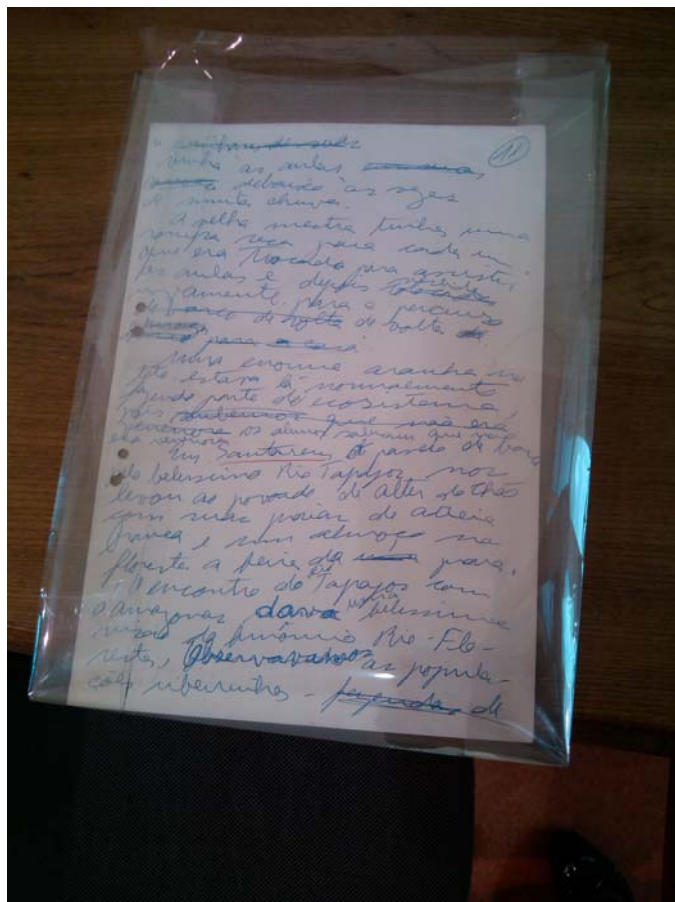 11
vinha às aulas
debaixo às vezes
de muita chuva.
A velha mestra tinha uma
roupa seca para cada um
que era trocada para assistir
as aulas e depois
para o percurso
de barco de volta de volta
para a casa
Uma enorme aranha no
teto estava lá normalmente
fazendo parte do ecosistema,
pois sabemos que não era
os alunos sabiam que não
era venenosa
Em Santarem o passeio de barco
pelo belissimo Rio Tapajoz nos
levou ao povoado de Alter do Chão
com suas praias de areia
branca e num almoço na
floresta a beira da praia.
O encontro do Rio Tapajos com
o Amazonas dava belissima
visão do binômio Rio-Flo-
resta, Observavamos as popula-
ções ribeirinhas - fazendas de